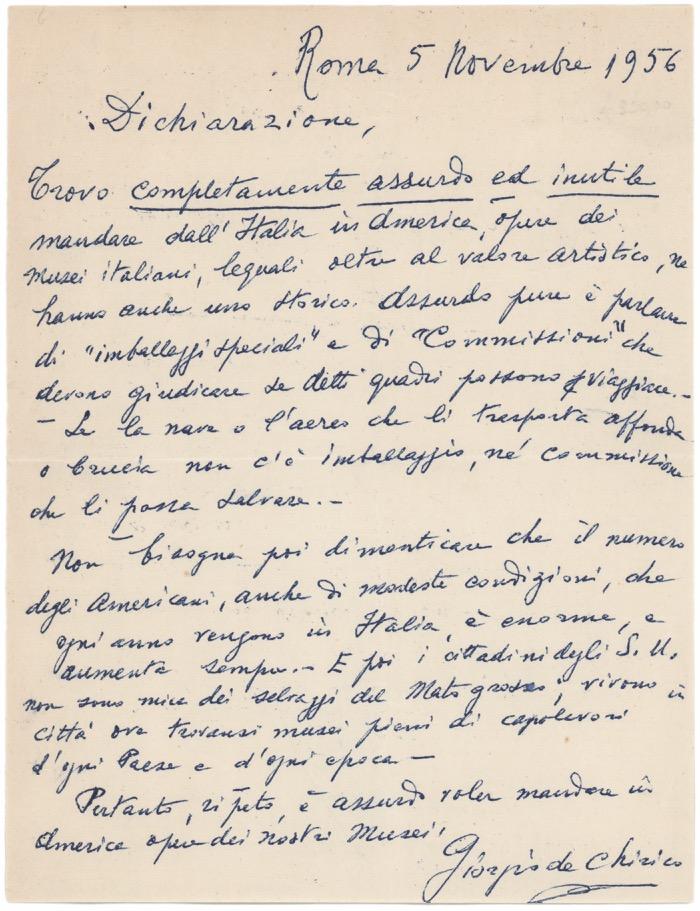 Roma 5 Novembre 1956
Dichiarazione,
Trovo completamente assurdo ed inutile
mandare dall'Italia in America, opere dei
musei italiani, lequali oltre al valore artistico, ne
hanno anche uno storico. Assurdo pure è parlare
di "imballaggi speciali" e di "Commissioni" che
devono giudicare se detti quadri possono viaggiare.-
- Se la nave o l'aereo che li trasporta affonda
o brucia non c'è imballaggio, né commissione
che li possa salvare.-
Non bisogna poi dimenticare che il numero
degli Americani, anche di modeste condizioni, che
ogni anno vengono in Italia, è enorme, e
aumenta sempre.- E poi i cittadini degli S.U.
non sono mica dei selvaggi del Matogrosso, vivono in
città ove trovansi musei pieni di capolavori
d'ogni Paese e d'ogni epoca -
Pertanto, ripeto, è assurdo voler mandare in
America opere dei nostri Musei.
Giorgio de Chirico